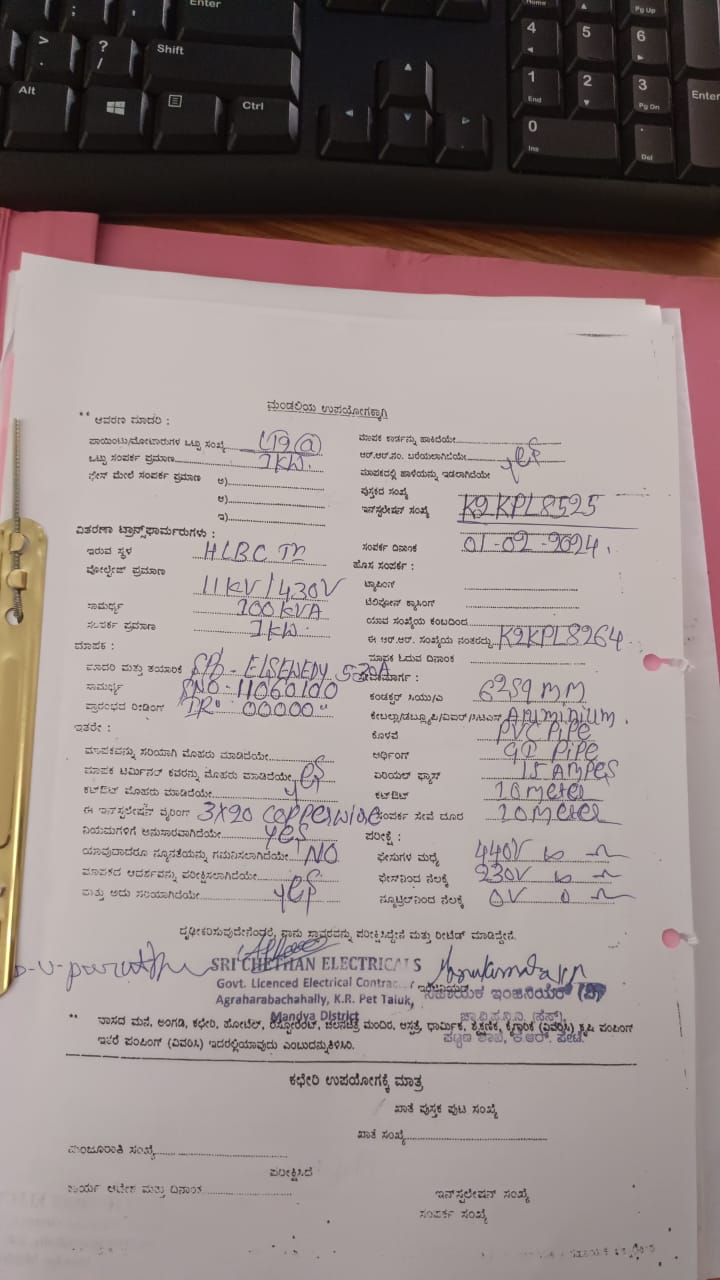 Enter
Home
▲
Pg Up
;
,
4
5
6
◄
►
>
.
?
/
Shift
1
End
2
▼
3
Pg Dn
Enter
Alt
Ctrl
0
Ins
.
Del
ಮಂಡಲಿಯ ಉಪಯೋಗಕ್ಕಾಗಿ
** ಆವರಣ ಮಾದರಿ :
ಪಾಯಿಂಟು/ಮೋಟಾರುಗಳ ಒಟ್ಟು ಸಂಖ್ಯೆ
ಮಾಪಕ ಕಾರ್ಡನ್ನು ಹಾಕಿದೆಯೇ
ಒಟ್ಟು ಸಂಪರ್ಕ ಪ್ರಮಾಣ 1KW.
ಆರ್.ಆರ್.ನಂ. ಬರೆಯಲಾಗಿದೆಯೇ yes
ಫೇಸ್ ಮೇಲೆ ಸಂಪರ್ಕ ಪ್ರಮಾಣ ಅ)
ಮಾಪಕದಲ್ಲಿ ಹಾಳೆಯನ್ನು ಇಡಲಾಗಿದೆಯೇ
ಆ)
ಪುಸ್ತಕದ ಸಂಖ್ಯೆ
ಇ)
ಇನ್‌ಸ್ಟಲೇಷನ್ ಸಂಖ್ಯೆ K2KPL8525
ವಿತರಣಾ ಟ್ರಾನ್ಸ್‌ಫಾರ್ಮರುಗಳು :
ಇರುವ ಸ್ಥಳ HLBC
ಸಂಪರ್ಕ ದಿನಾಂಕ 01-02-2024.
ವೋಲ್ಟೇಜ್ ಪ್ರಮಾಣ 11KV/430V
ಹೊಸ ಸಂಪರ್ಕ :
ಟ್ಯಾಪಿಂಗ್
ಸಾಮರ್ಥ್ಯ 100KVA
ಟೆಲಿಫೋನ್ ಕ್ರಾಸಿಂಗ್
ಸಂಪರ್ಕ ಪ್ರಮಾಣ 1KW.
ಯಾವ ಸಂಖ್ಯೆಯ ಕಂಬದಿಂದ
ಮಾಪಕ :
ಈ ಆರ್.ಆರ್. ಸಂಖ್ಯೆಯ ನಂತರದ್ದು K2KPL8264
ಮಾಪಕ ಓದುವ ದಿನಾಂಕ
ಮಾದರಿ ಮತ್ತು ತಯಾರಿಕೆ
ಸಾಮರ್ಥ್ಯ SNO-11060100
ಕಂಡಕ್ಟರ್ ಸಿಯು/ಎ 6259 MM
ಪ್ರಾರಂಭದ ರೀಡಿಂಗ್ "IR" 00000"
Aluminium.
ಇತರೇ :
ಕೊಳವೆ PVC PiPe
ಮಾಪಕವನ್ನು ಸರಿಯಾಗಿ ಮೊಹರು ಮಾಡಿದೆಯೇ
ಅರ್ಥಿಂಗ್ GI PiPe
ಮಾಪಕ ಟರ್ಮಿನಲ್ ಕವರನ್ನು ಮೊಹರು ಮಾಡಿದೆಯೇ yes
ಏರಿಯಲ್ ಫ್ಯೂಸ್ 15 Ampes
ಕಟ್‌ಔಟ್ ಮೊಹರು ಮಾಡಿದೆಯೇ
ಕಟ್‌ಔಟ್ 10 meter
ಈ ಇನ್‌ಸ್ಟಲೇಷನ್ ವೈರಿಂಗ್ 3X20 Copperwire
ಸಂಪರ್ಕ ಸೇವೆ ದೂರ 10 meter
ನಿಯಮಗಳಿಗೆ ಅನುಸಾರವಾಗಿದೆಯೇ yes
ಪರೀಕ್ಷೆ :
ಯಾವುದಾದರೂ ನ್ಯೂನತೆಯನ್ನು ಗಮನಿಸಲಾಗಿದೆಯೇ NO
ಫೇಸುಗಳ ಮಧ್ಯೆ 440V
ಮಾಪಕದ ಆದರ್ಶವನ್ನು ಪರೀಕ್ಷಿಸಲಾಗಿದೆಯೇ yes
ಫೇಸ್‌ನಿಂದ ನೆಲಕ್ಕೆ 230V
ಮತ್ತು ಅದು ಸರಿಯಾಗಿದೆಯೇ
ನ್ಯೂಟ್ರಲ್‌ನಿಂದ ನೆಲಕ್ಕೆ 0V 0
ದೃಢೀಕರಿಸುವುದೇನೆಂದರೆ, ನಾನು ಸ್ಥಾವರವನ್ನು ಪರೀಕ್ಷಿಸಿದ್ದೇನೆ ಮತ್ತು ರೀಟೆಡ್ ಮಾಡಿದ್ದೇನೆ.
SRI CHETHAN ELECTRICALS
Govt. Licenced Electrical Contractor
Agraharabachahally, K.R. Pet Taluk,
Mandya District
ಸಹಾಯಕ ಇಂಜಿನಿಯರ್ (ವಿ)
ಚಾ.ವಿ.ಸ.ನಿ.ನಿ. (ಸೆಸ್),
ಪಟ್ಟಣ ಶಾಖೆ, ಕೆ.ಆರ್. ಪೇಟೆ.
** ವಾಸದ ಮನೆ, ಅಂಗಡಿ, ಕಛೇರಿ, ಹೋಟೆಲ್, ರೆಸ್ಟೋರೆಂಟ್, ಚಲನಚಿತ್ರ ಮಂದಿರ, ಆಸ್ಪತ್ರೆ, ಧಾರ್ಮಿಕ, ಶೈಕ್ಷಣಿಕ, ಕೈಗಾರಿಕೆ (ವಿವರಿಸಿ) ಕೃಷಿ ಪಂಪಿಂಗ್
ಇತರೆ ಪಂಪಿಂಗ್ (ವಿವರಿಸಿ) ಇದರಲ್ಲಿಯಾವುದು ಎಂಬುದನ್ನುತಿಳಿಸಿ.
ಕಛೇರಿ ಉಪಯೋಗಕ್ಕೆ ಮಾತ್ರ
ಖಾತೆ ಪುಸ್ತಕ ಪುಟ ಸಂಖ್ಯೆ
ಖಾತೆ ಸಂಖ್ಯೆ
ಮಂಜೂರಾತಿ ಸಂಖ್ಯೆ
ಪರೀಕ್ಷಿಸಿದೆ
ಕಾರ್ಯ ಆದೇಶ ಮತ್ತು ದಿನಾಂಕ
ಇನ್‌ಸ್ಟಲೇಷನ್ ಸಂಖ್ಯೆ
ಸಂಪರ್ಕ ಸಂಖ್ಯೆ